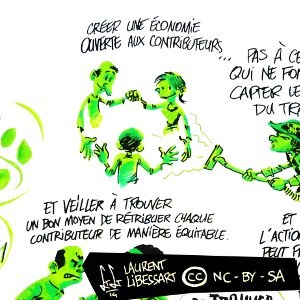 CRÉER UNE ÉCONOMIE
OUVERTE AUX CONTRIBUTEURS...
... PAS À CE
QUI NE FON
CAPTER LE
DU TR
ET VEILLER À TROUVER
UN BON MOYEN DE RÉTRIBUER CHAQUE
CONTRIBUTEUR DE MANIÈRE ÉQUITABLE.
ET
L'ACTIO
PEUT F
LAURENT
LIBESSART
CC NC-BY-SA